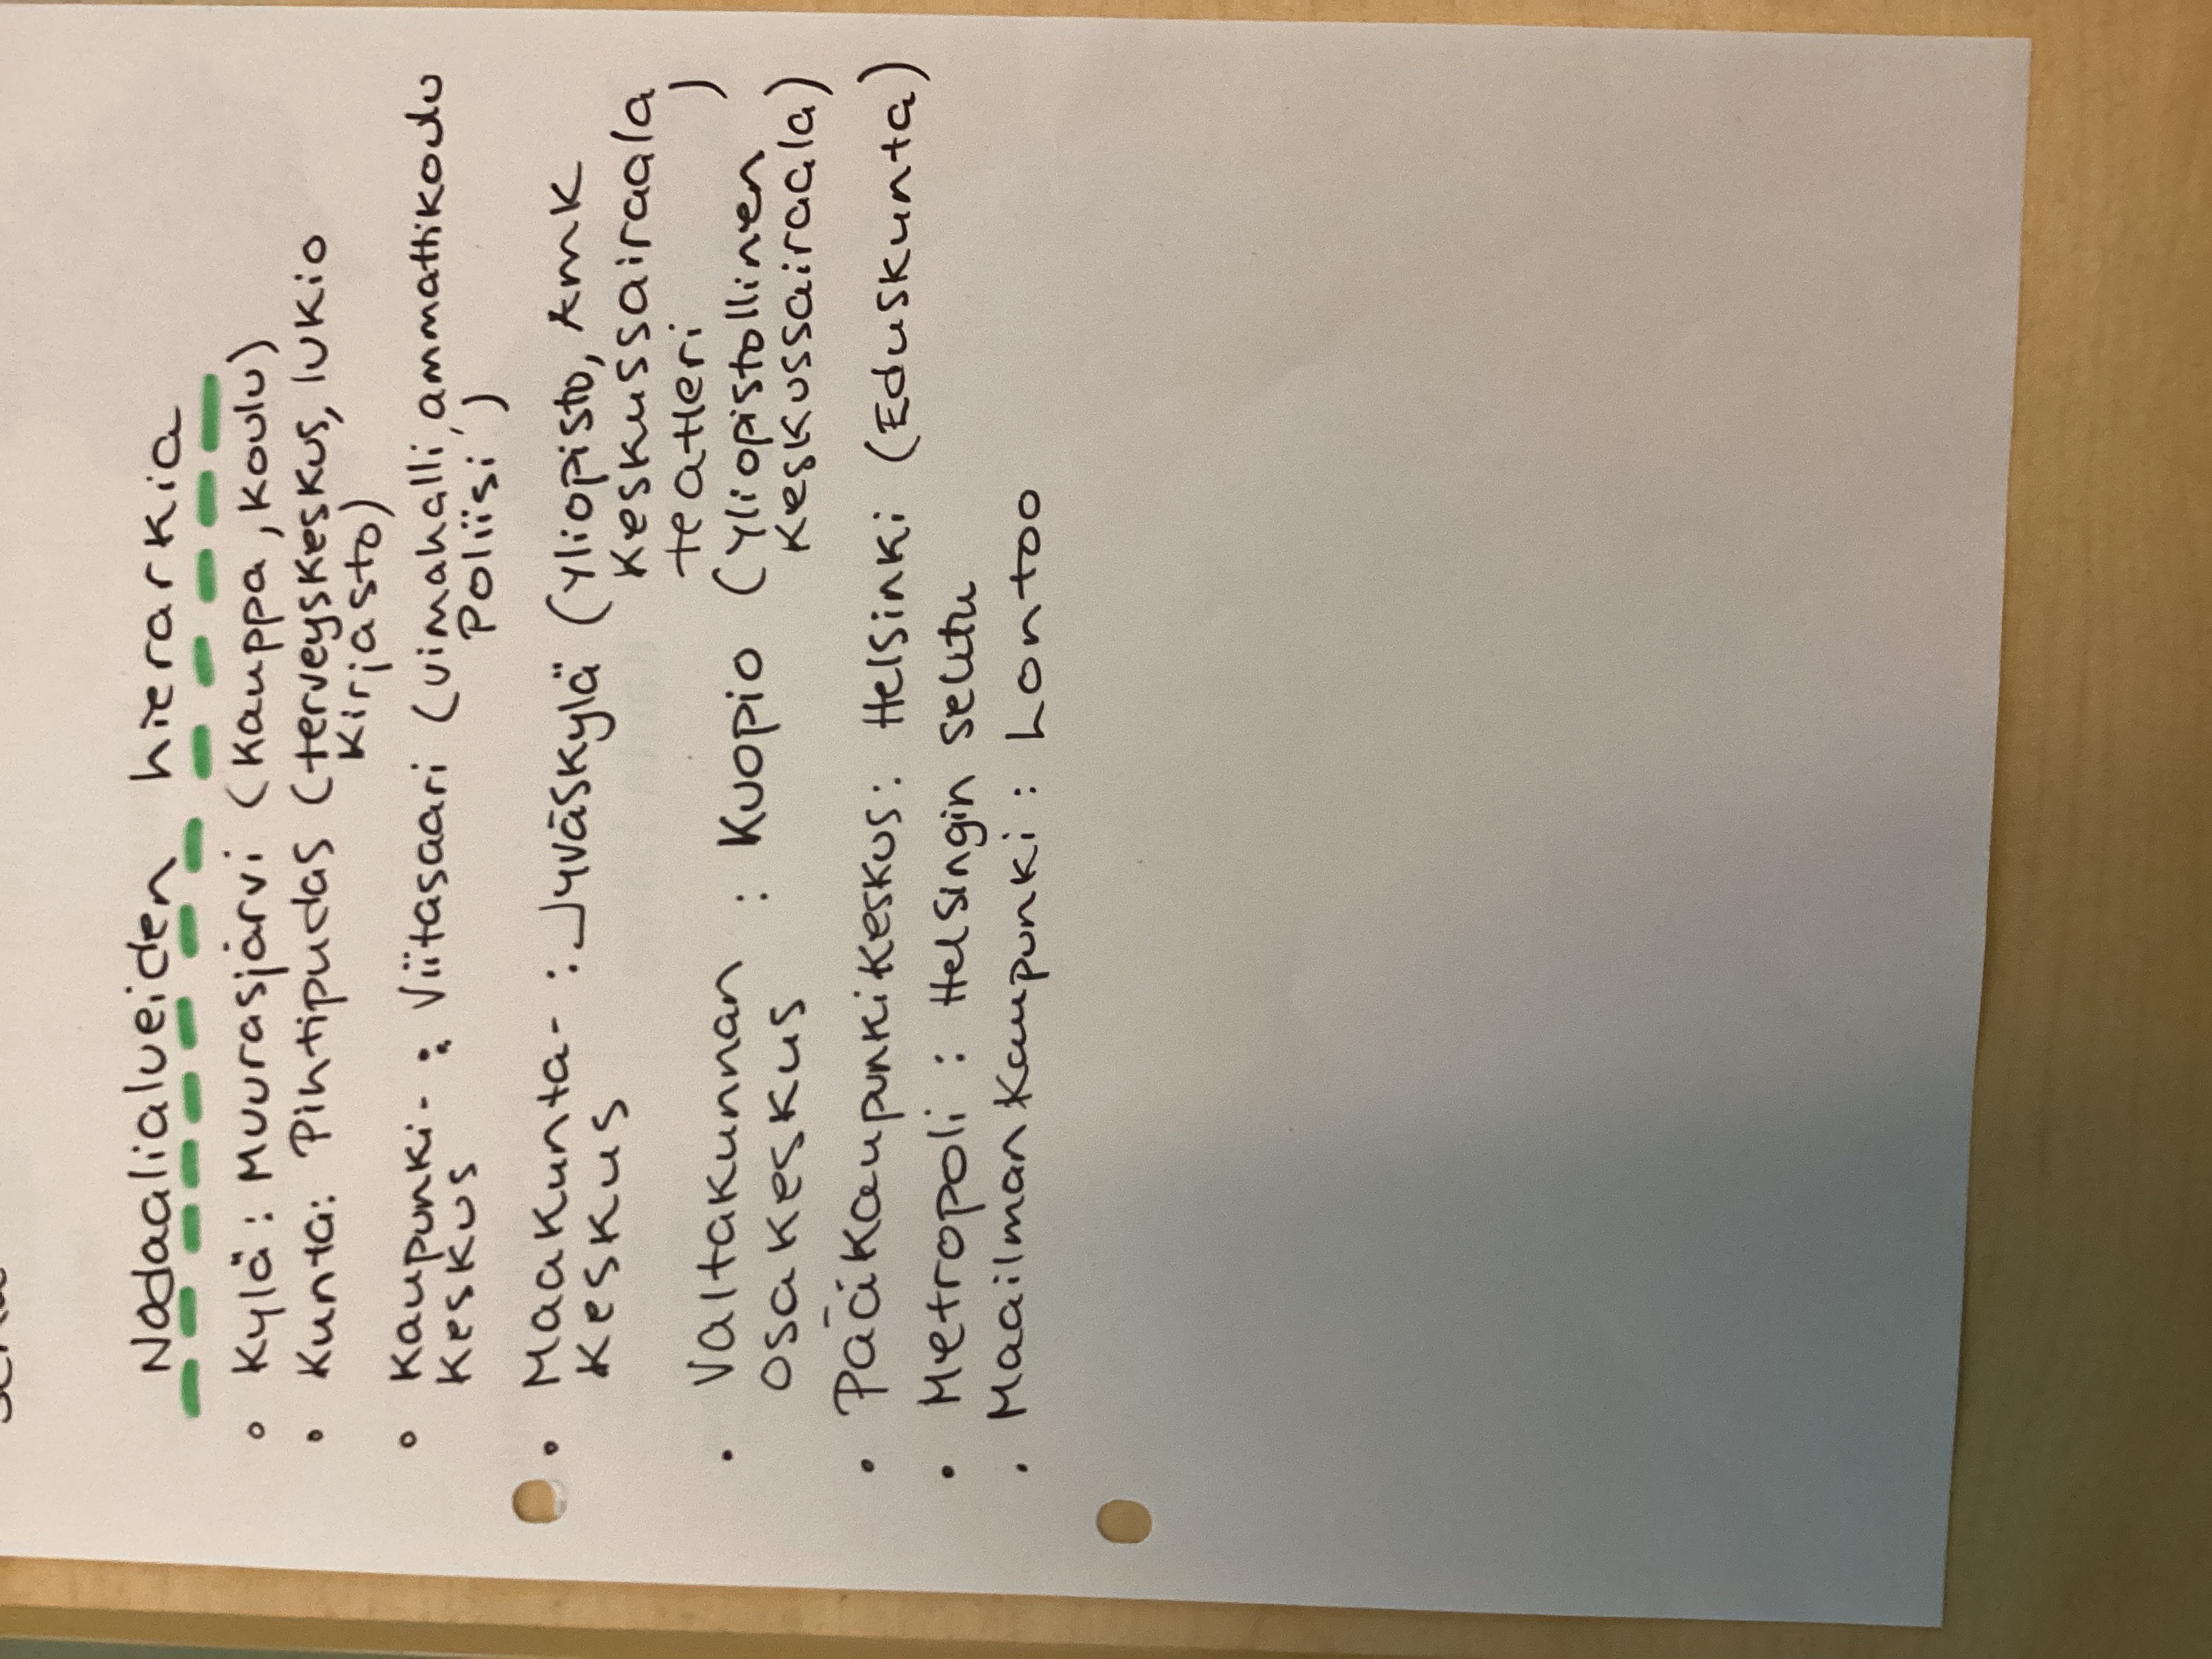 Nodaalialueiden hierarkia
• Kylä : Muurasjärvi (kauppa, koulu)
• Kunta: Pihtipudas (terveyskeskus, lukio
kirjasto)
• Kaupunki- : Viitasaari (uimahalli, ammattikoulu
keskus poliisi)
• Maakunta- : Jyväskylä (yliopisto, AMK
keskus keskussairaala
teatteri )
• Valtakunnan : Kuopio (yliopistollinen
osakeskus keskussairaala)
• Pääkaupunkikeskus: Helsinki (Eduskunta)
• Metropoli : Helsingin seutu
• Maailmankaupunki : Lontoo